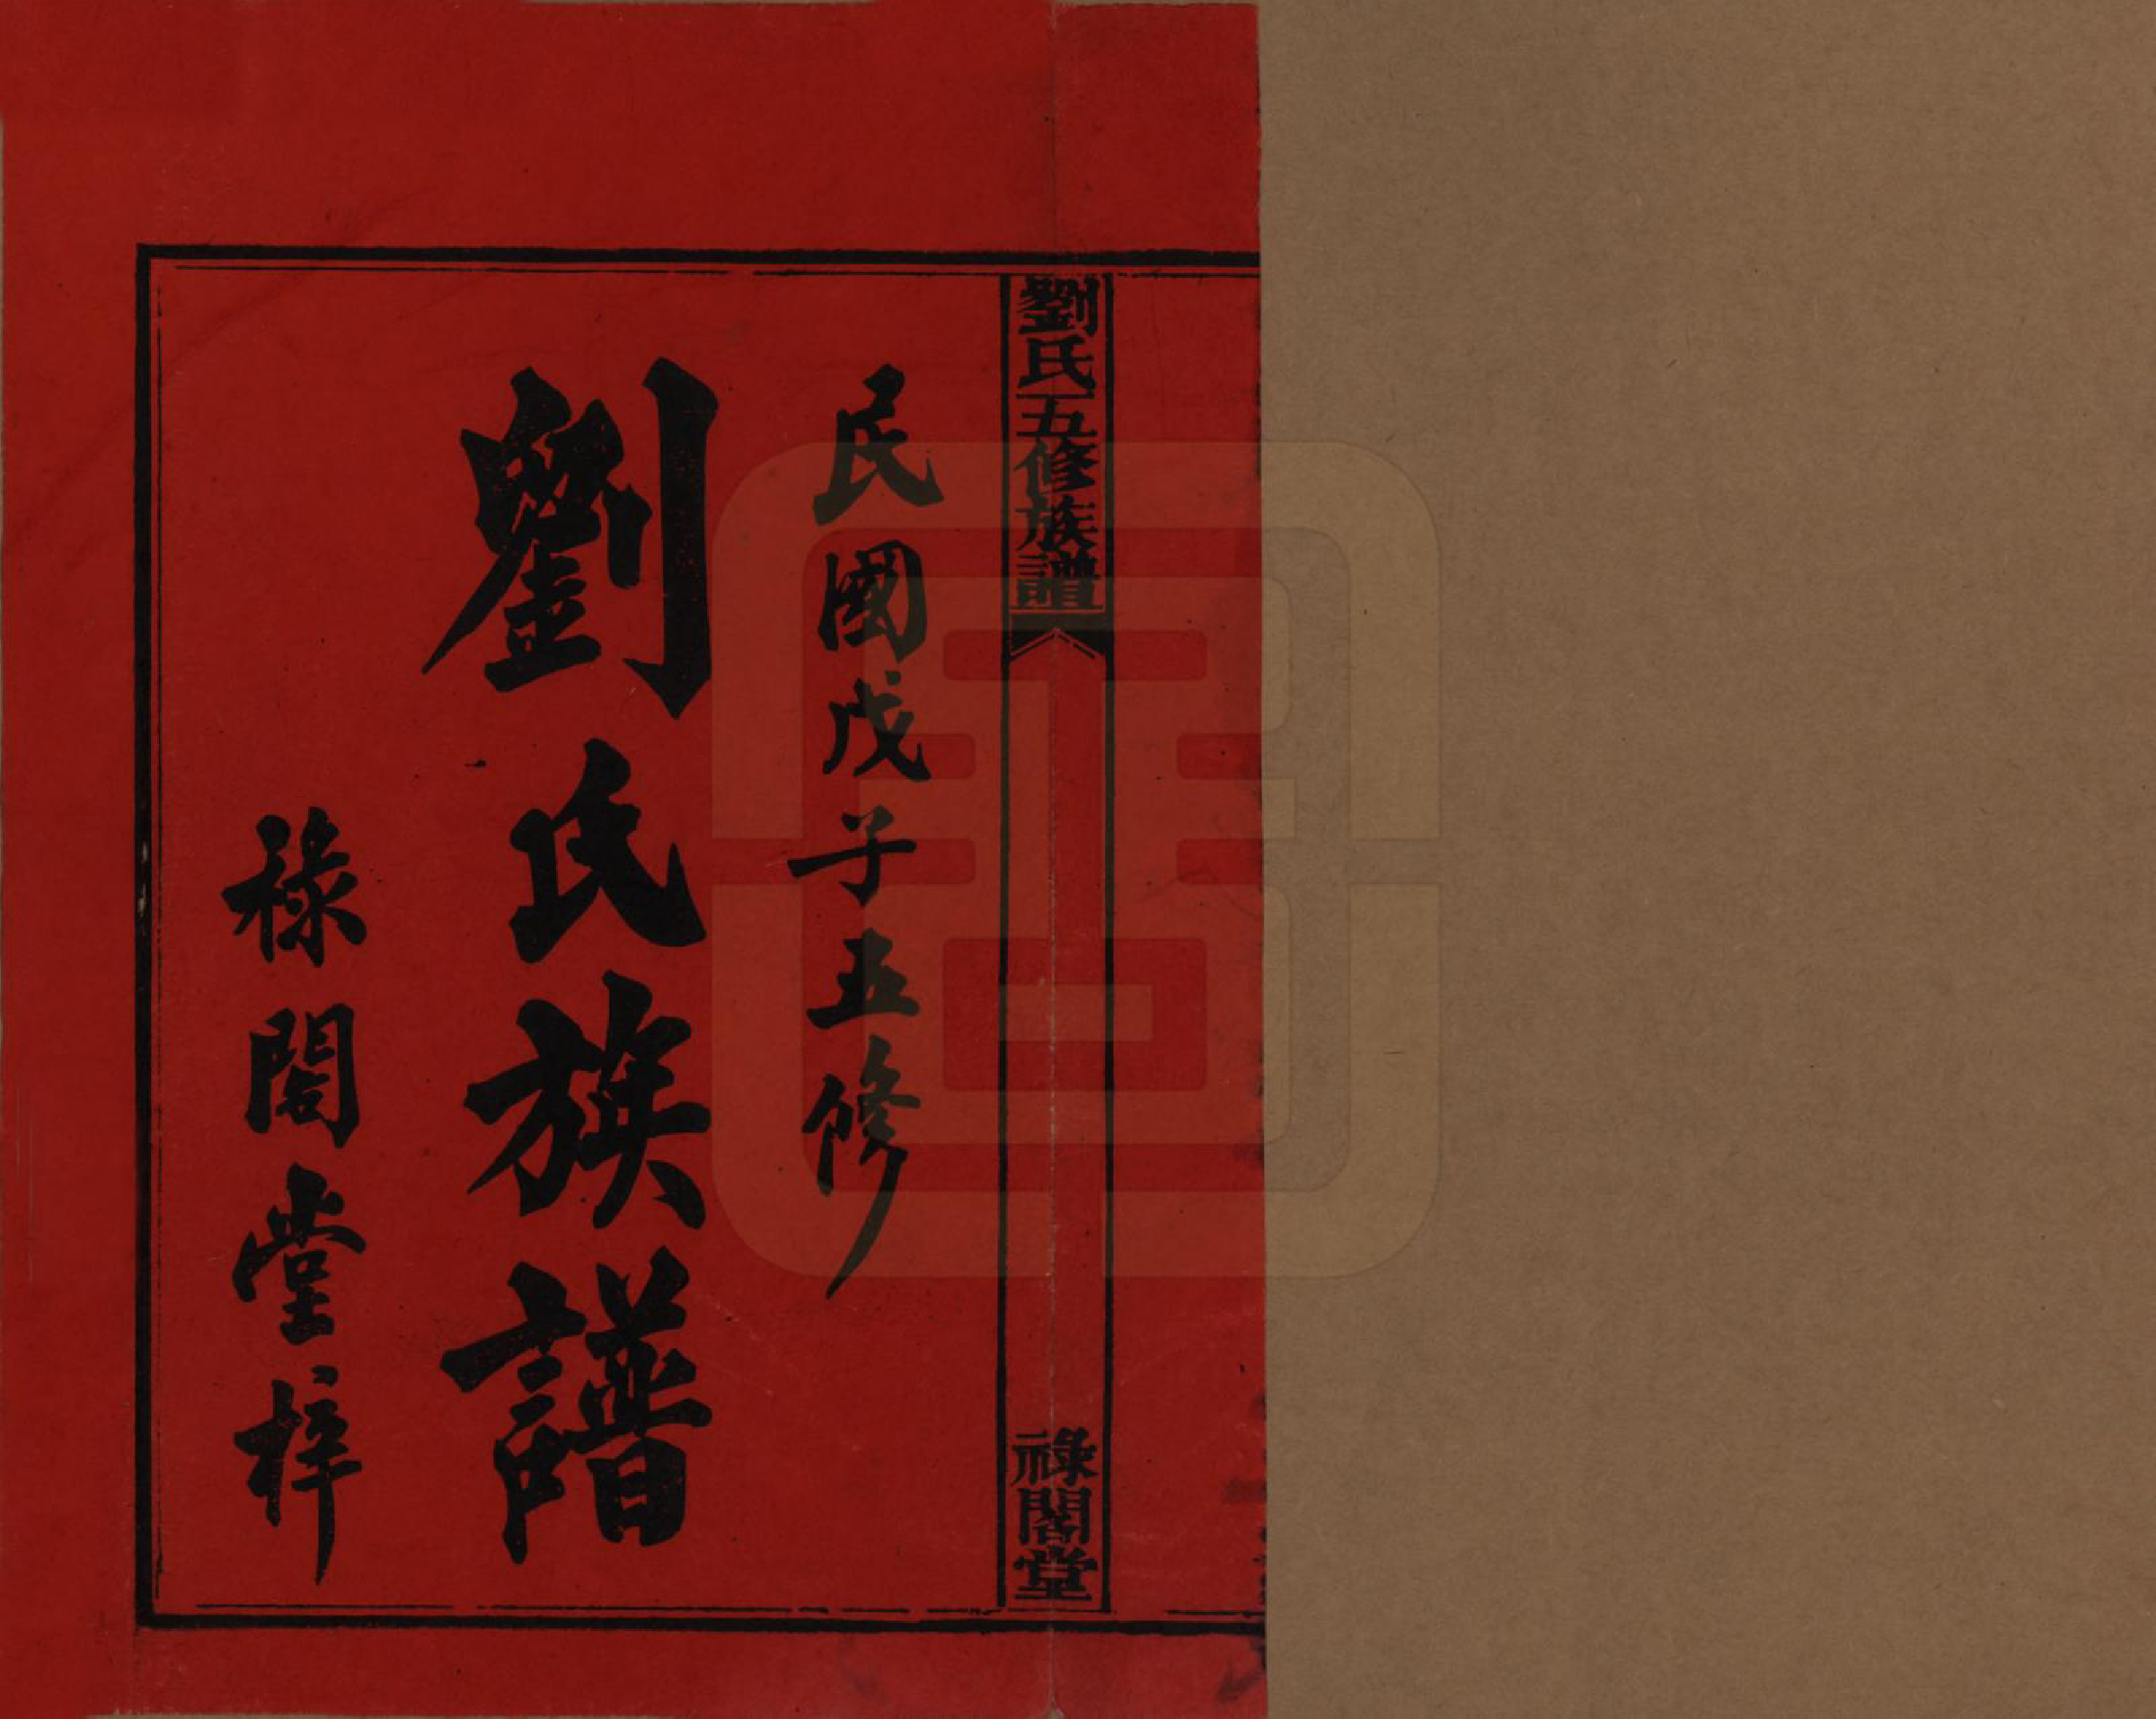 劉氏五修族譜
祿閣堂
民國戊子五修
劉氏族譜
祿閣堂梓